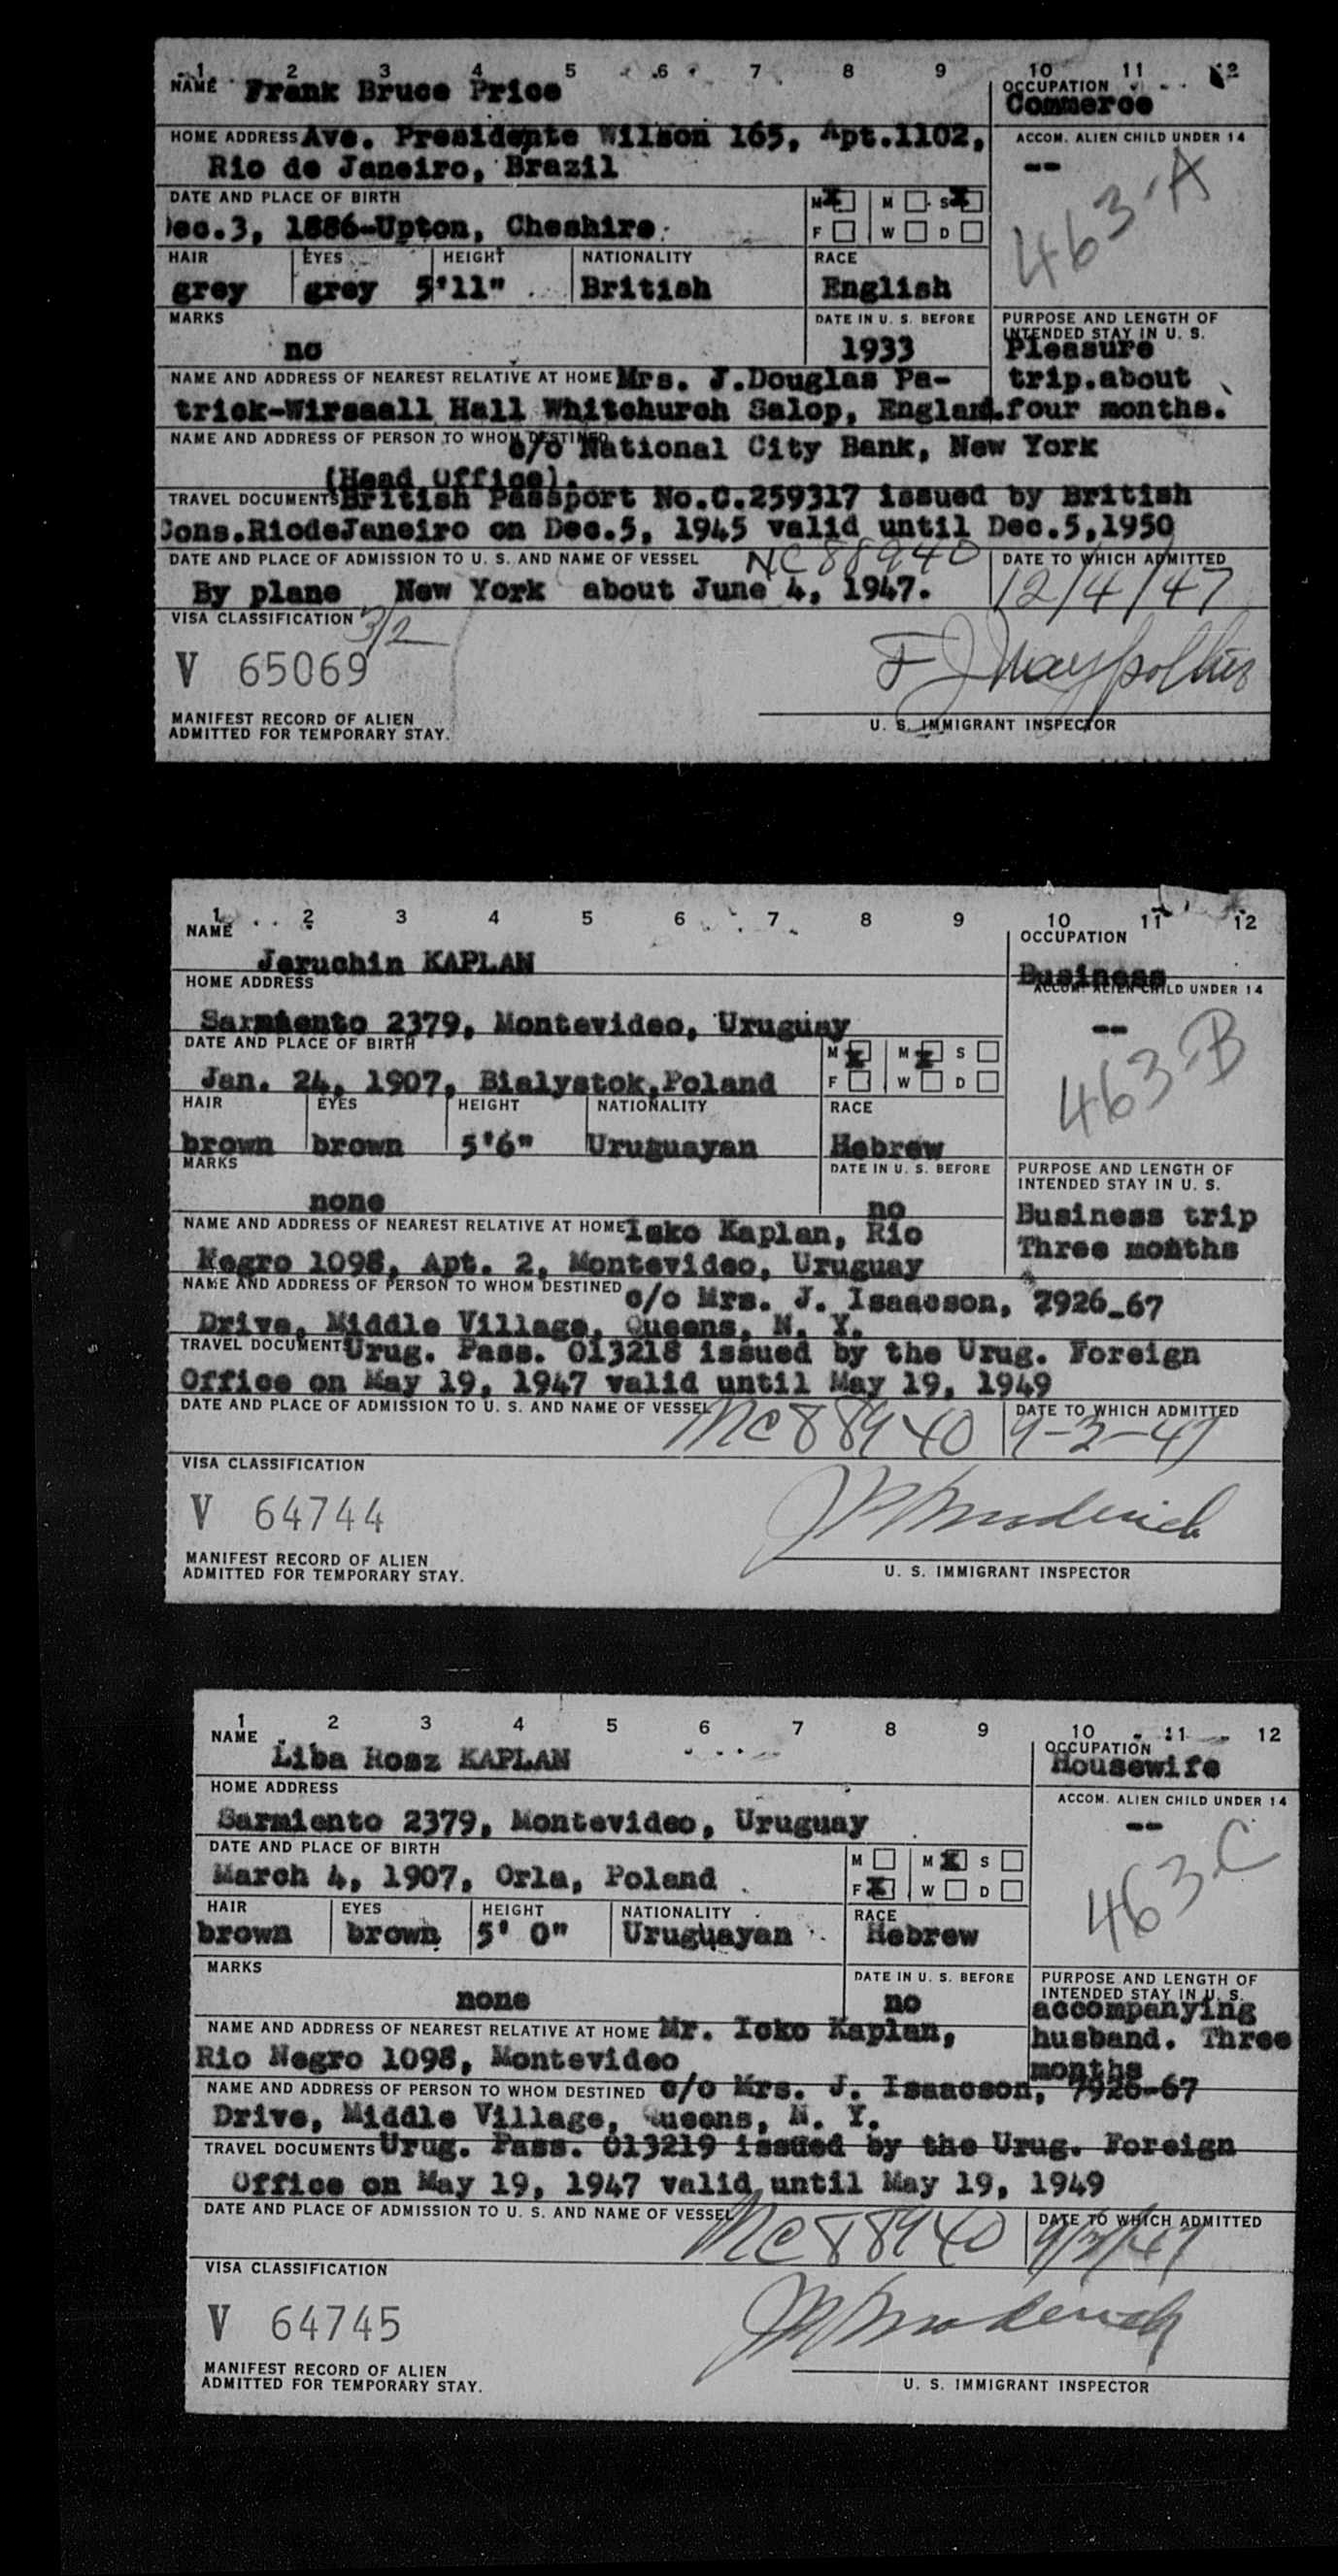 1 2 3 4 5 6 7 8 9 10 11 12
NAME Frank Bruce Price
OCCUPATION
Commerce
HOME ADDRESS Ave. Presidente Wilson 165, Apt.1102,
Rio de Janeiro, Brazil
ACCOM. ALIEN CHILD UNDER 14
--
463-A
DATE AND PLACE OF BIRTH
Dec.3, 1886-Upton, Cheshire
M X M S X
F W D
HAIR EYES HEIGHT NATIONALITY RACE
grey grey 5'11" British English
MARKS
no
DATE IN U. S. BEFORE
1933
PURPOSE AND LENGTH OF
INTENDED STAY IN U. S.
Pleasure
trip.about
four months.
NAME AND ADDRESS OF NEAREST RELATIVE AT HOME Mrs. J.Douglas Pa-
trick-Wirsaall Hall Whitchurch Salop, England.
NAME AND ADDRESS OF PERSON TO WHOM DESTINED
c/o National City Bank, New York
(Head Office).
TRAVEL DOCUMENTS British Passport No.C.259317 issued by British
Cons.RiodeJaneiro on Dec.5, 1945 valid until Dec.5,1950
DATE AND PLACE OF ADMISSION TO U. S. AND NAME OF VESSEL NC88940
By plane New York about June 4, 1947.
DATE TO WHICH ADMITTED
12/4/47
VISA CLASSIFICATION 3/2
V 65069
MANIFEST RECORD OF ALIEN
ADMITTED FOR TEMPORARY STAY.
U. S. IMMIGRANT INSPECTOR
1 2 3 4 5 6 7 8 9 10 11 12
NAME
Jeruchin KAPLAN
OCCUPATION
Business
HOME ADDRESS
Sarmiento 2379, Montevideo, Uruguay
ACCOM. ALIEN CHILD UNDER 14
--
463-B
DATE AND PLACE OF BIRTH
Jan. 24, 1907, Bialystok,Poland
M X M X S
F W D
HAIR EYES HEIGHT NATIONALITY RACE
brown brown 5'6" Uruguayan Hebrew
MARKS
none
DATE IN U. S. BEFORE
no
PURPOSE AND LENGTH OF
INTENDED STAY IN U. S.
Business trip
Three months
NAME AND ADDRESS OF NEAREST RELATIVE AT HOME Icko Kaplan, Rio
Negro 1098, Apt. 2, Montevideo, Uruguay
NAME AND ADDRESS OF PERSON TO WHOM DESTINED c/o Mrs. J. Isaacson, 7926-67
Drive, Middle Village, Queens, N. Y.
TRAVEL DOCUMENTS Urug. Pass. 013218 issued by the Urug. Foreign
Office on May 19, 1947 valid until May 19, 1949
DATE AND PLACE OF ADMISSION TO U. S. AND NAME OF VESSEL NC88940
DATE TO WHICH ADMITTED
9-3-47
VISA CLASSIFICATION
V 64744
MANIFEST RECORD OF ALIEN
ADMITTED FOR TEMPORARY STAY.
U. S. IMMIGRANT INSPECTOR
1 2 3 4 5 6 7 8 9 10 11 12
NAME
Liba Rosz KAPLAN
OCCUPATION
Housewife
HOME ADDRESS
Sarmiento 2379, Montevideo, Uruguay
ACCOM. ALIEN CHILD UNDER 14
--
463-C
DATE AND PLACE OF BIRTH
March 4, 1907, Orla, Poland
M M X S
F X W D
HAIR EYES HEIGHT NATIONALITY RACE
brown brown 5' 0" Uruguayan Hebrew
MARKS
none
DATE IN U. S. BEFORE
no
PURPOSE AND LENGTH OF
INTENDED STAY IN U. S.
accompanying
husband. Three
months
NAME AND ADDRESS OF NEAREST RELATIVE AT HOME Mr. Icko Kaplan,
Rio Negro 1098, Montevideo
NAME AND ADDRESS OF PERSON TO WHOM DESTINED c/o Mrs. J. Isaacson, 7926-67
Drive, Middle Village, Queens, N. Y.
TRAVEL DOCUMENTS Urug. Pass. 013219 issued by the Urug. Foreign
Office on May 19, 1947 valid until May 19, 1949
DATE AND PLACE OF ADMISSION TO U. S. AND NAME OF VESSEL NC88940
DATE TO WHICH ADMITTED
9/3/47
VISA CLASSIFICATION
V 64745
MANIFEST RECORD OF ALIEN
ADMITTED FOR TEMPORARY STAY.
U. S. IMMIGRANT INSPECTOR